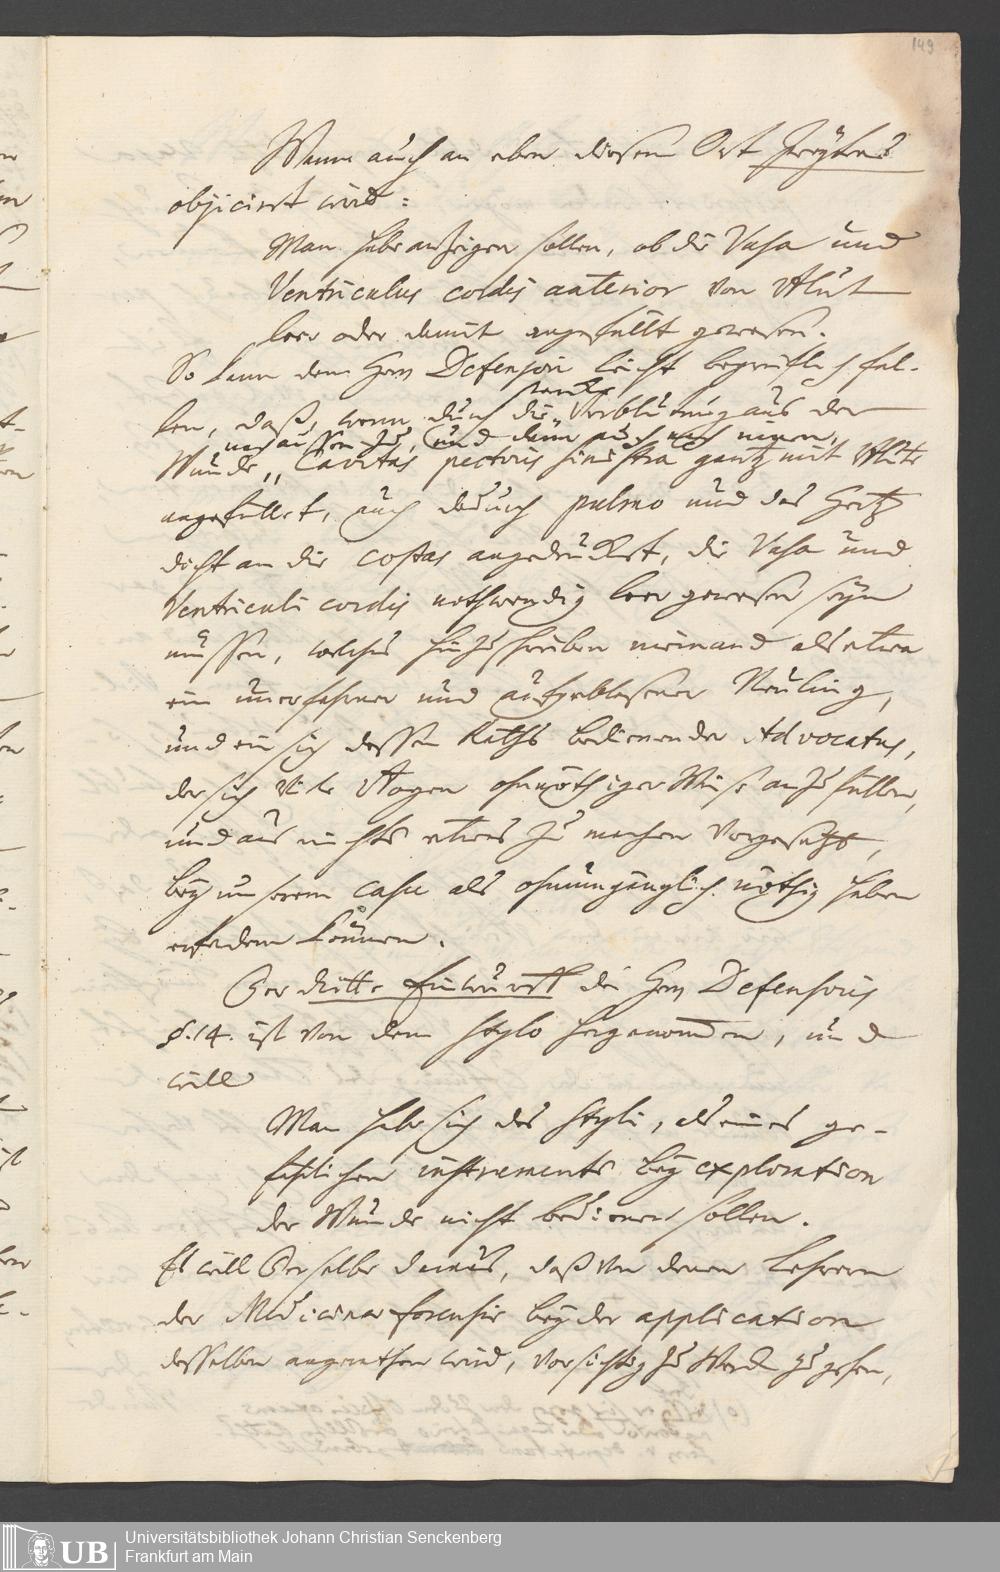 149
Wann auch an eben diesem Ort zweytens
objicirt wird:
Man habe anzeigen sollen, ob die Vasa und
Ventriculus cordis anterior von Blut
leer oder damit angefüllt gewesen.
So kann dem Herrn Defensori leicht begreiflich fal-
len, daß, wenn durch die starke Verblutung aus der
Wunde nach aussen zu, und dann auch nach innen,
Cavitas pectoris sinistra gantz mit Blute
angefüllet, auch dadurch pulmo und das Hertz
dicht an die costas angedrücket, die Vasa und
Ventriculi cordis nothwendig leer gewesen seyn
müssen, welches hinzuschreiben niemand als etwa
ein unerfahrner und aufgeblasener Neuling,
und ein sich dessen Raths bedienender Advocatus,
der sich viele Bogen ohnnöthiger Weise anzufüllen,
und aus nichts etwas zu machen vorgesetzt,
bey unserem casu als ohnumgänglich nöthig haben
erfordern können.
Der dritte Einwurff des Herrn Defensoris
§. 14. ist von dem stylo hergenommen, und
will
Man habe sich des styli, als eines ge-
fährlichen instruments bey exploration
der Wunde nicht bedienen sollen.
Es will Derselbe daraus, daß von denen Lehrern
der Medicinae forensis bey der application
desselben angerathen wird, vorsichtig zu Werck zu gehen,
UB
Universitätsbibliothek Johann Christian Senckenberg
Frankfurt am Main